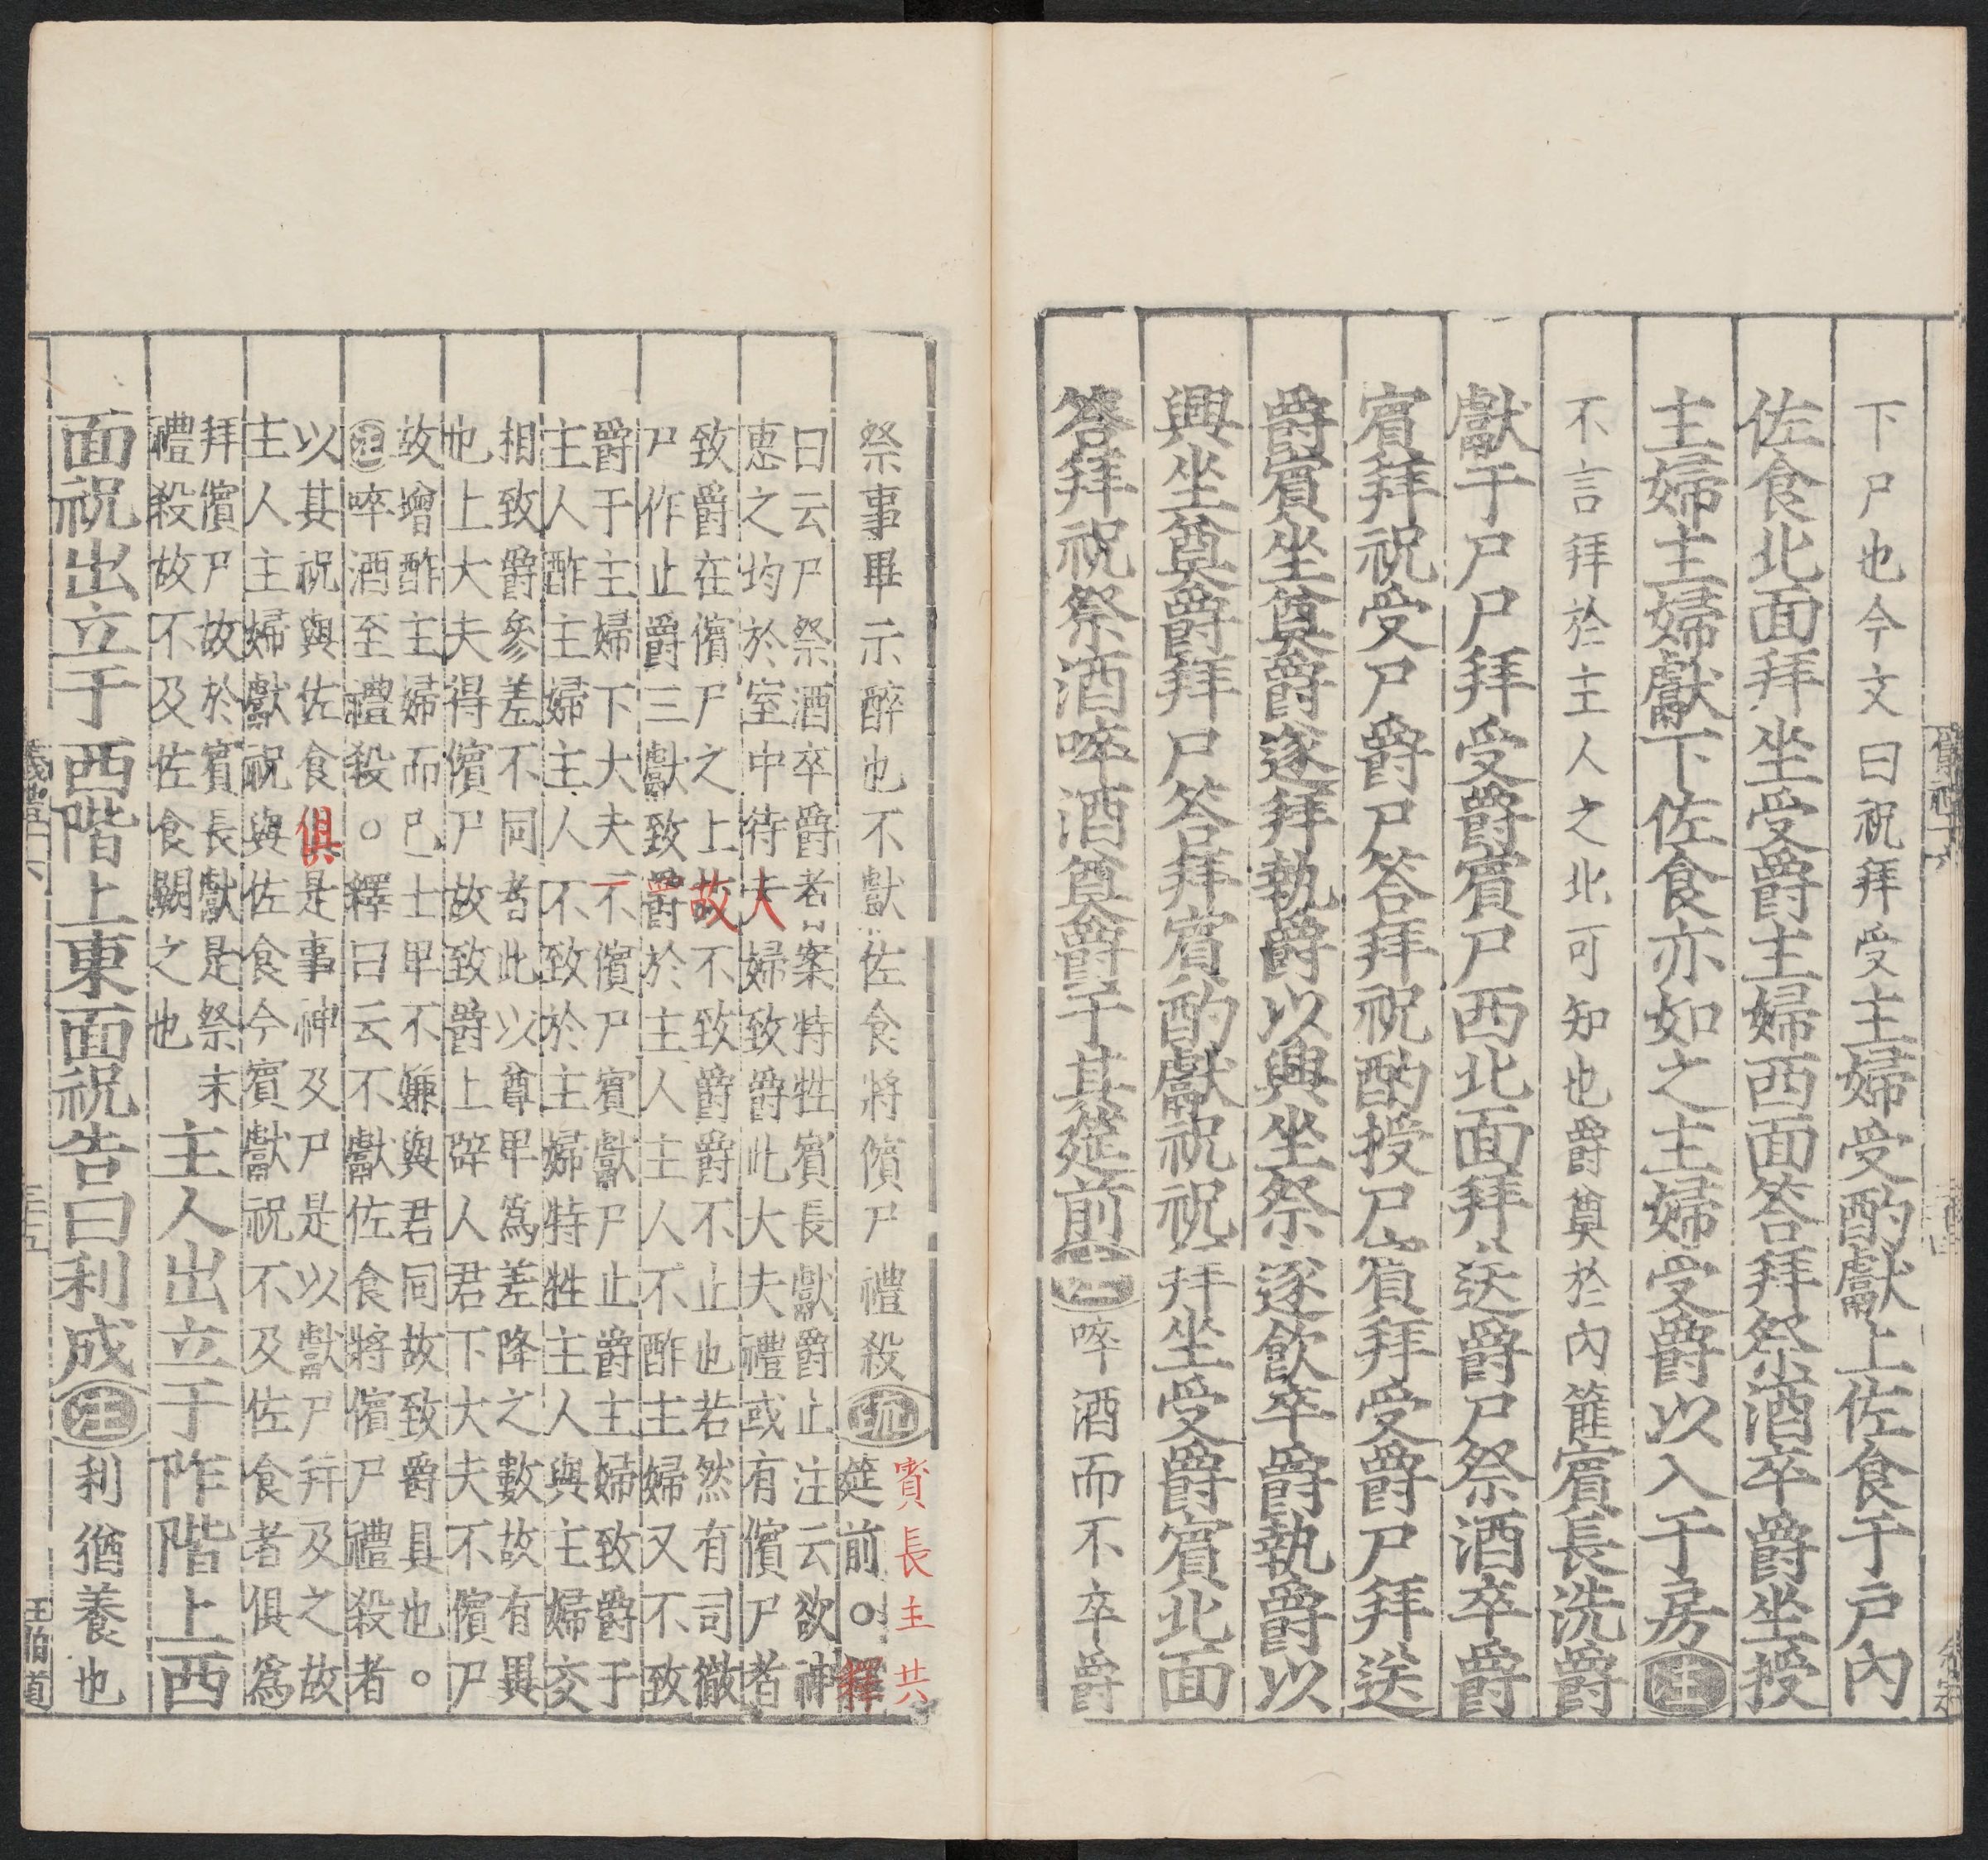 下尸也今文曰祝拜受主婦受酌獻上佐食于戶內
佐食北面拜坐受爵主婦西面答拜祭酒卒爵坐授
主婦主婦獻下佐食亦如之主婦受爵以入于房注
不言拜於主人之北可知也爵奠於內篚賓長洗爵
獻于尸尸拜受爵賓尸西北面拜送爵尸祭酒卒爵
賓拜祝受尸爵尸答拜祝酌授尸賓拜受爵尸拜送
爵賓坐奠爵遂拜執爵以興坐祭遂飲卒爵執爵以
興坐奠爵拜尸答拜賓酌獻祝祝拜坐受爵賓北面
答拜祝祭酒啐酒奠爵于其筵前注啐酒而不卒爵
祭事畢示醉也不獻佐食將儐尸禮殺疏
賓長主共
筵前○釋
曰云尸祭酒卒爵者案特牲賓長獻爵止注云欲神
惠之均於室中待夫婦致爵此大夫禮或有儐尸者
致爵在儐尸之上故不致爵爵不止也若然有司徹
尸作止爵三獻致爵於主人主人不酢主婦又不致
爵于主婦下大夫不儐尸賓獻尸止爵主婦致爵于
主人酢主婦主人不致於主婦特牲主人與主婦交
相致爵參差不同者此以尊卑為差降之數故有異
也上大夫得儐尸故致爵上辟人君下大夫不儐尸
故增酢主婦而已士卑不嫌與君同故致爵具也。
注啐酒至禮殺○釋曰云不獻佐食將儐尸禮殺者
以其祝與佐食俱是事神及尸是以獻尸并及之故
主人主婦獻祝與佐食今賓獻祝不及佐食者俱為
拜儐尸故於賓長獻是祭末
禮殺故不及佐食闕之也
主人出立于阼階上西
面祝出立于西階上東面祝告曰利成注利猶養也
王伯道